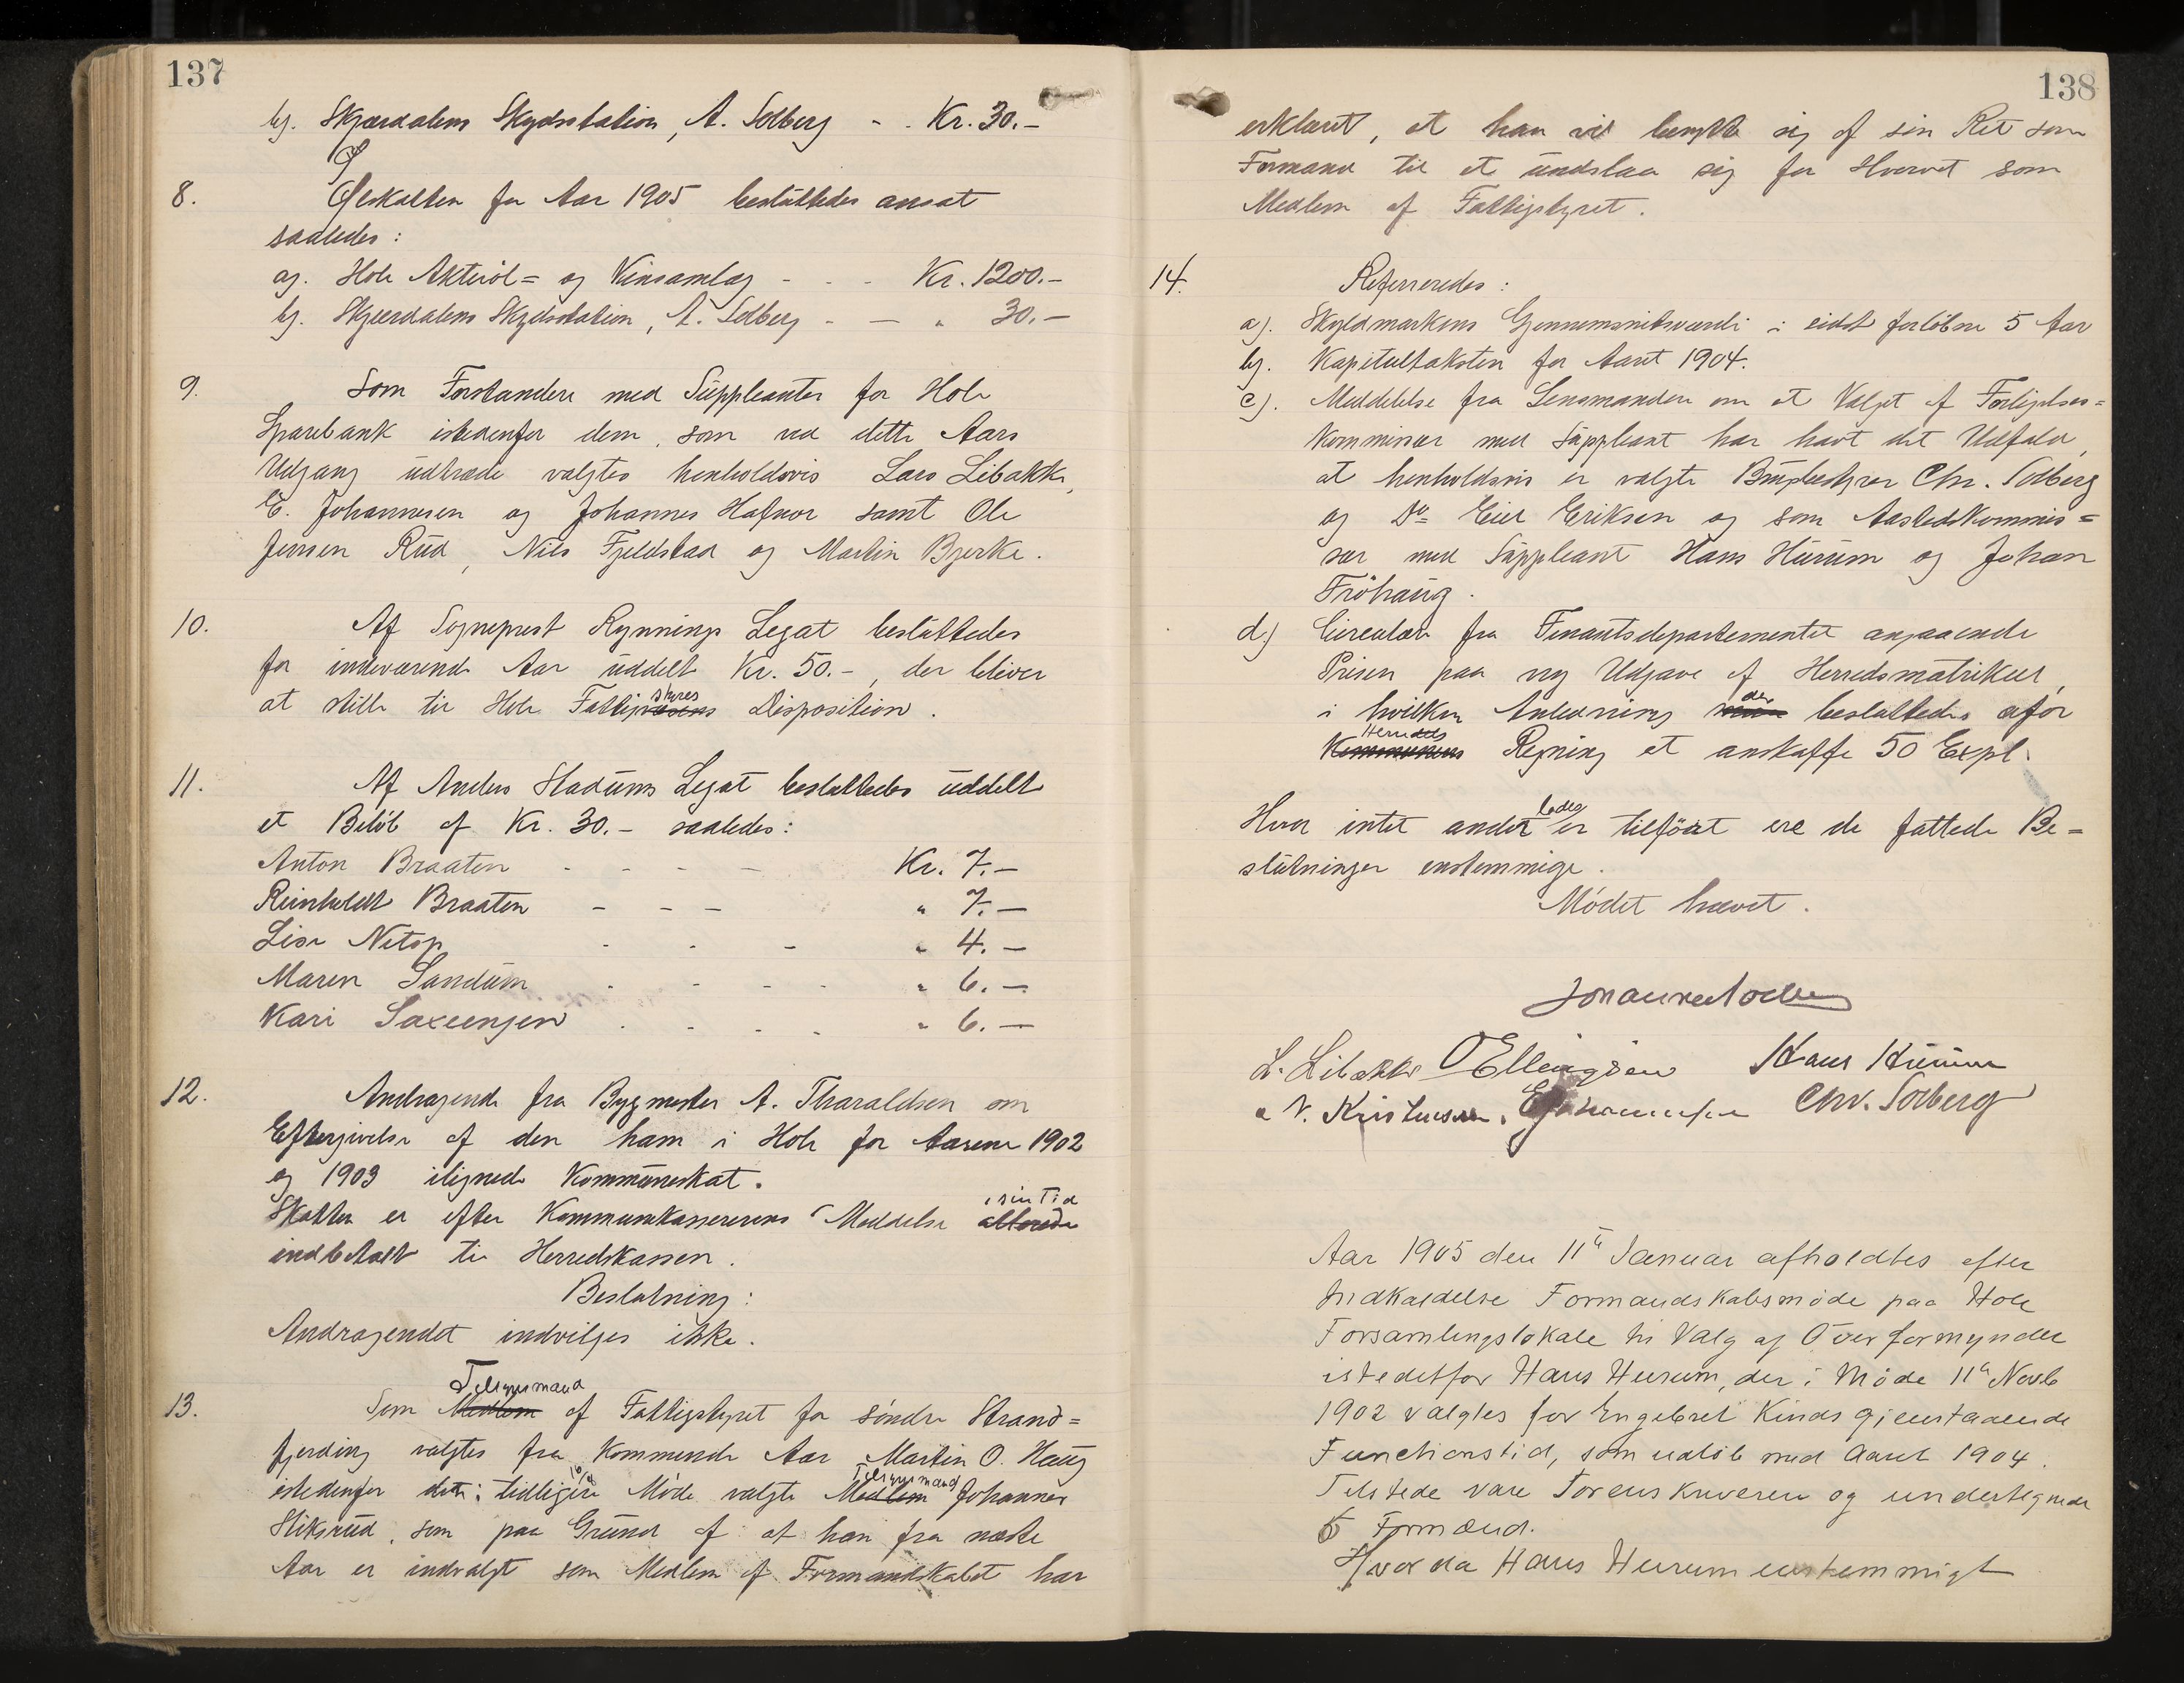 137
b). Skjærdalens Skydsstation, A. Solberg - - Kr. 30.-
8. Ølskatten for Aar 1905 besluttedes ansat
saaledes:
a). Hole Aktieøl= og Vinsamlag - - - Kr. 1200.-
b). Skjærdalens Skydsstation, A. Solberg - - " 30.-
9. Som Forstandere med Suppleanter for Hole
Sparebank istedenfor dem, som ved dette Aars
Udgang udtræde valgtes henholdsvis Lars Libakke,
E. Johannesen og Johannes Hafnor samt Ole
Jensen Rud, Nils Fjeldstad og Martin Bjerke.
10. Af Sogneprest Rynnings Legat besluttedes
for indeværende Aar uddelt Kr. 50.-, der bliver
at stille til Hole Fattigvæsens styres Disposition.
11. Af Anders Stadums Legat besluttedes uddelt
et Beløb af Kr. 30.- saaledes:
Anton Braaten - - - - Kr. 7.-
Reinholdt Braaten - - - " 7.-
Lise Netop - - - " 4.-
Maren Sandum - - - - " 6.-
Kari - - - - " 6.-
12. Andragende fra Bygmester A. Tharaldsen om
Eftergivelse af den ham i Hole for Aarene 1902
og 1903 ilignede Kommuneskat.
Skatten er efter Kommunekassererens Meddelse allerede i sin Tid
indbetalt til Herredskassen.
Beslutning:
Andragendet indvilges ikke.
13. Som Medlem Tilsynsmand af Fattigstyret for søndre Strand=
fjerding valgtes fra kommende Aar Martin O. Haug
istedenfor den i tidligere Møde valgte Medlem Tilsynsmand Johannes
Stiksrud, som paa Grund af at han fra næste
Aar er indvalgt som Medlem af Formandskabet har
138
erklæret, at han vil benytte sig af sin Ret som
Formand til at undslaa sig for Hvervet som
Medlem af Fattigstyret.
14. Refereredes:
a). Skyldmarkens Gjennemsnitsværdi i sidst forløbne 5 Aar
b). Kapitaltaksten for Aaret 1904.
c). Meddelelse fra Lensmanden om at Valget af Forligelses=
kommissær med Suppleant har havt det Udfald,
at henholdsvis er valgte Brugbestyrer Chr. Solberg
og Do Eier Eriksen og som Aastedskommis=
sær med Suppleant Hans Hurum og Johan
Frøhaug.
d.) Circulære fra Finantsdepartementet angaaende
Prisen paa ny Udgave af Herredsmatrikul,
i hvilken Anledning der besluttedes afor
Kommunens Herredets Regning at anskaffe 50 Expl.
Hvor intet anderledes er tilført ere de fattede Be=
slutninger enstemmige.
Mødet hævet.
L. Libakke O Ellingsen Hans Hurum
N. Kristensen. E Johannesen Chr. Solberg
Aar 1905 den 11te Januar afholdtes efter
Indkaldelse Formandskabsmøde paa Hole
Forsamlingslokale til Valg af Overformynder
istedetfor Hans Hurum, der i Møde 11te Novb
1902 valgtes for Engebret Kinds gjenstaaende
Functionstid, som udløb med Aaret 1904.
Tilstede vare Sorenskriveren og undertegnede
5 Formænd.
Hvorda Hans Hurum enstemmigt